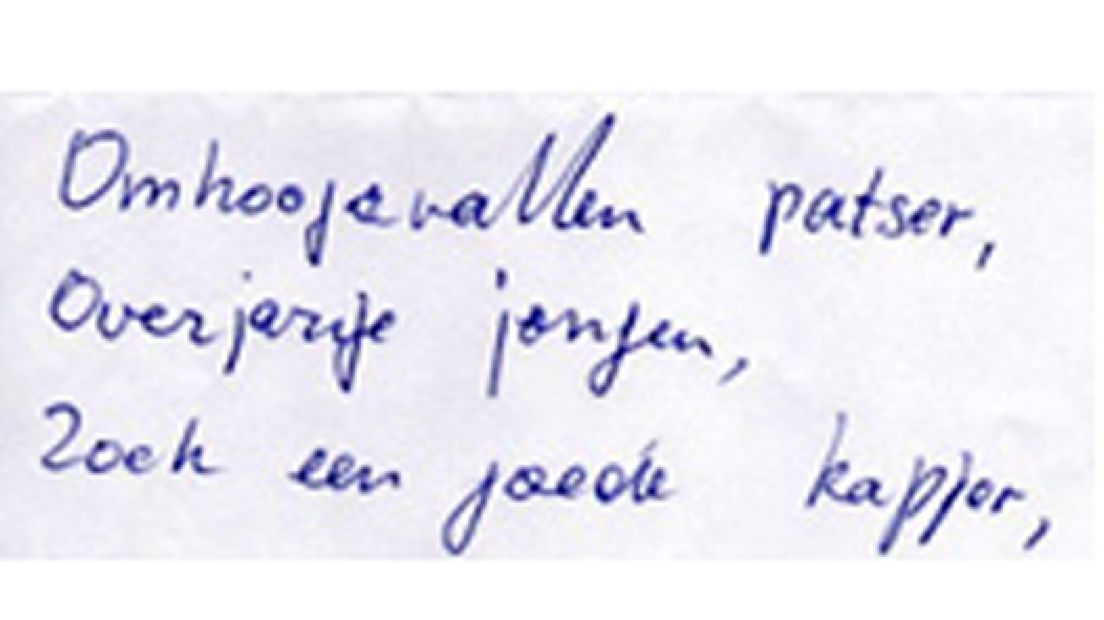 Omhooggevallen patser,
Overjarige jongen,
Zoek een goede kapper,